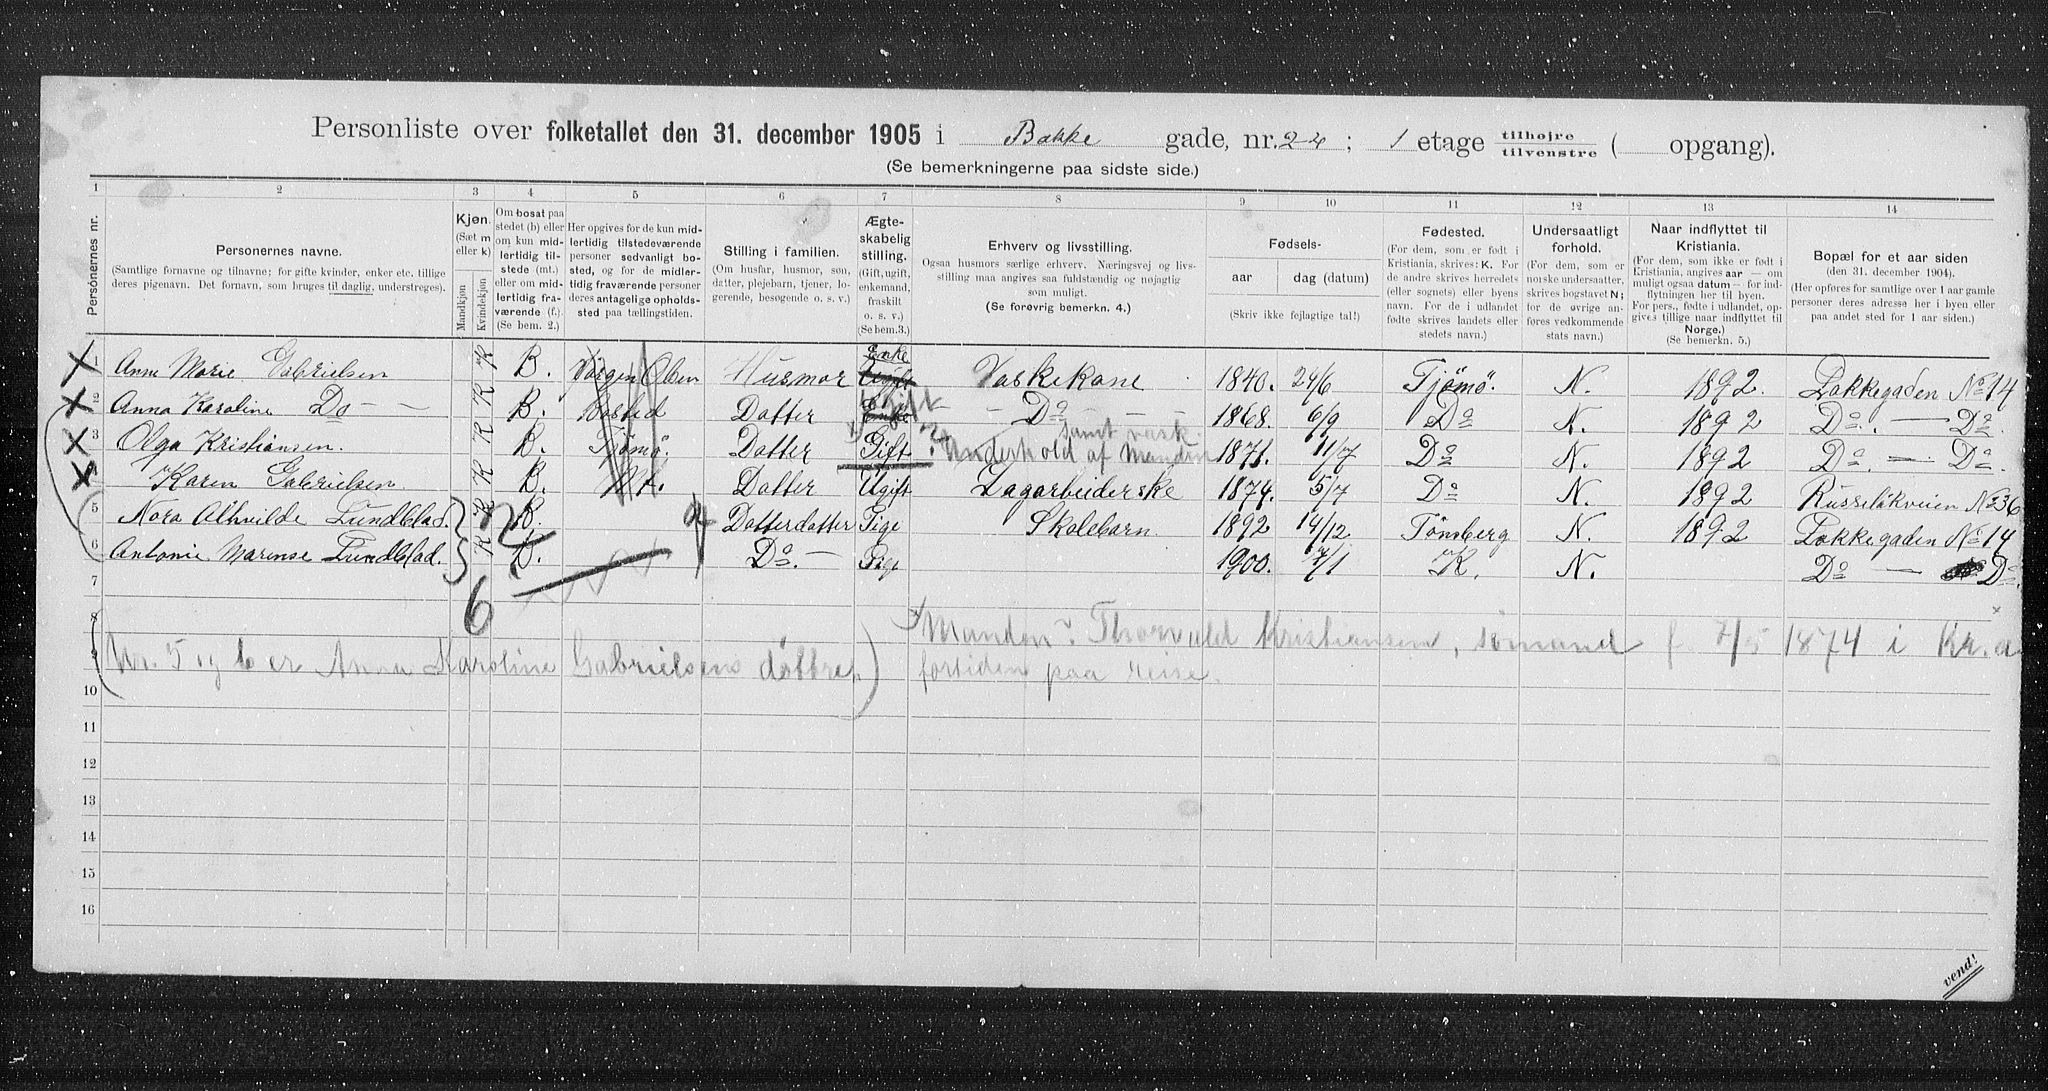 Personliste over folketallet den 31. december 1905 i Bakke gade, nr. 24; 1 etage tilhøjre tilvenstre ( opgang).
(Se bemerkningerne paa sidste side.)
1 2 3 4 5 6 7 8 9 10 11 12 13 14
Personernes nr.
Personernes navne.
(Samtlige fornavne og tilnavne; for gifte kvinder, enker etc. tillige
deres pigenavn. Det fornavn, som bruges til daglig, understreges).
Kjøn.
(Sæt m
eller k)
Mandkjøn
Kvindekjøn
Om bosat paa
stedet (b) eller
om kun mid-
lertidig til-
stede (mt.)
eller om mid-
lertidig fra-
værende (f.).
(Se bem. 2.)
Her opgives for de kun mid-
lertidig tilstedeværende
personer sedvanlig bo-
sted, og for de midler-
tidig fraværende personer
deres antagelige opholds-
sted paa tællingstiden.
Stilling i familien.
(Om husfar, husmor, søn,
datter, plejebarn, tjener, lo-
gerende, besøgende o. s. v.)
Ægte-
skabelig
stilling.
(Gift, ugift,
enkemand,
fraskilt
o. s. v.)
(Se bem.3.)
Erhverv og livsstilling.
Ogsaa husmors særlige erhverv. Næringsvej og livs-
stilling maa angives saa fuldstændig og nøjagtig
som muligt.
(Se forøvrig bemerkn. 4.)
Fødsels-
aar dag (datum)
(Skriv ikke fejlagtige tal!)
Fødested.
(For dem, som er født i
Kristiania, skrives: K. For
de andre skrives herredets
(eller sognets) eller byens
navn. For de i udlandet
fødte skrives landets eller
stedets navn.)
Undersaatligt
forhold.
(For dem, som er
norske undersaatter,
skrives bogstavet N;
for de øvrige an-
føres vedkommende
stats navn.)
Naar indflyttet til
Kristiania.
(For dem, som ikke er født i
Kristiania, angives aar — om
muligt ogsaa datum — for ind-
flytningen her til byen.
For pers., fødte i udlandet, op-
gives tillige naar indflyttet til
Norge.)
(Se bemerkn. 5.)
Bopæl for et aar siden
(den 31. december 1904).
(Her opføres for samtlige over 1 aar gamle
personer deres adresse her i byen eller
paa andet sted for 1 aar siden.)
1 Anne Marie Gabrielsen K B. Jørgen Olsen Husmor Enke Ugift Vaskekone 1840. 24/6 Tjömö. N. 1892. Lakkegaden No 14
2 Anna Karoline Do K B. Bosted Datter Ugift Enke Do 1868. 6/9 Do N. 1892 Do. Do
3 Olga Kristiansen. K B. Tjømø. Datter Gift Underhold af Manden samt vask 1871. 11/7 Do N. 1892 Do. Do.
Karen Gabrielsen K B. Mt. Datter Ugift Lagarbeiderske 1874. 5/7 Do N. 1892 Russeløkveien No 36
5 Nora Alhvilde Lundblad. K B. Datterdatter Pige Skolebarn. 1892 14/12 Tönsberg N. 1892 Lakkegaden No 14
6 Antonie Marense Lundblad. K B. Do. Pige 1900. 7/1 K. N. Do Do.
2
4
6
7
8
9
10
11
12
13
14
15
16
(Nr. 5 og 6 er Anna Karoline Gabrielsens døttre.)
Manden: Thorvald Kristiansen, sømand f 7/5 1874 i Kr.a
fortiden paa reise.
vend!